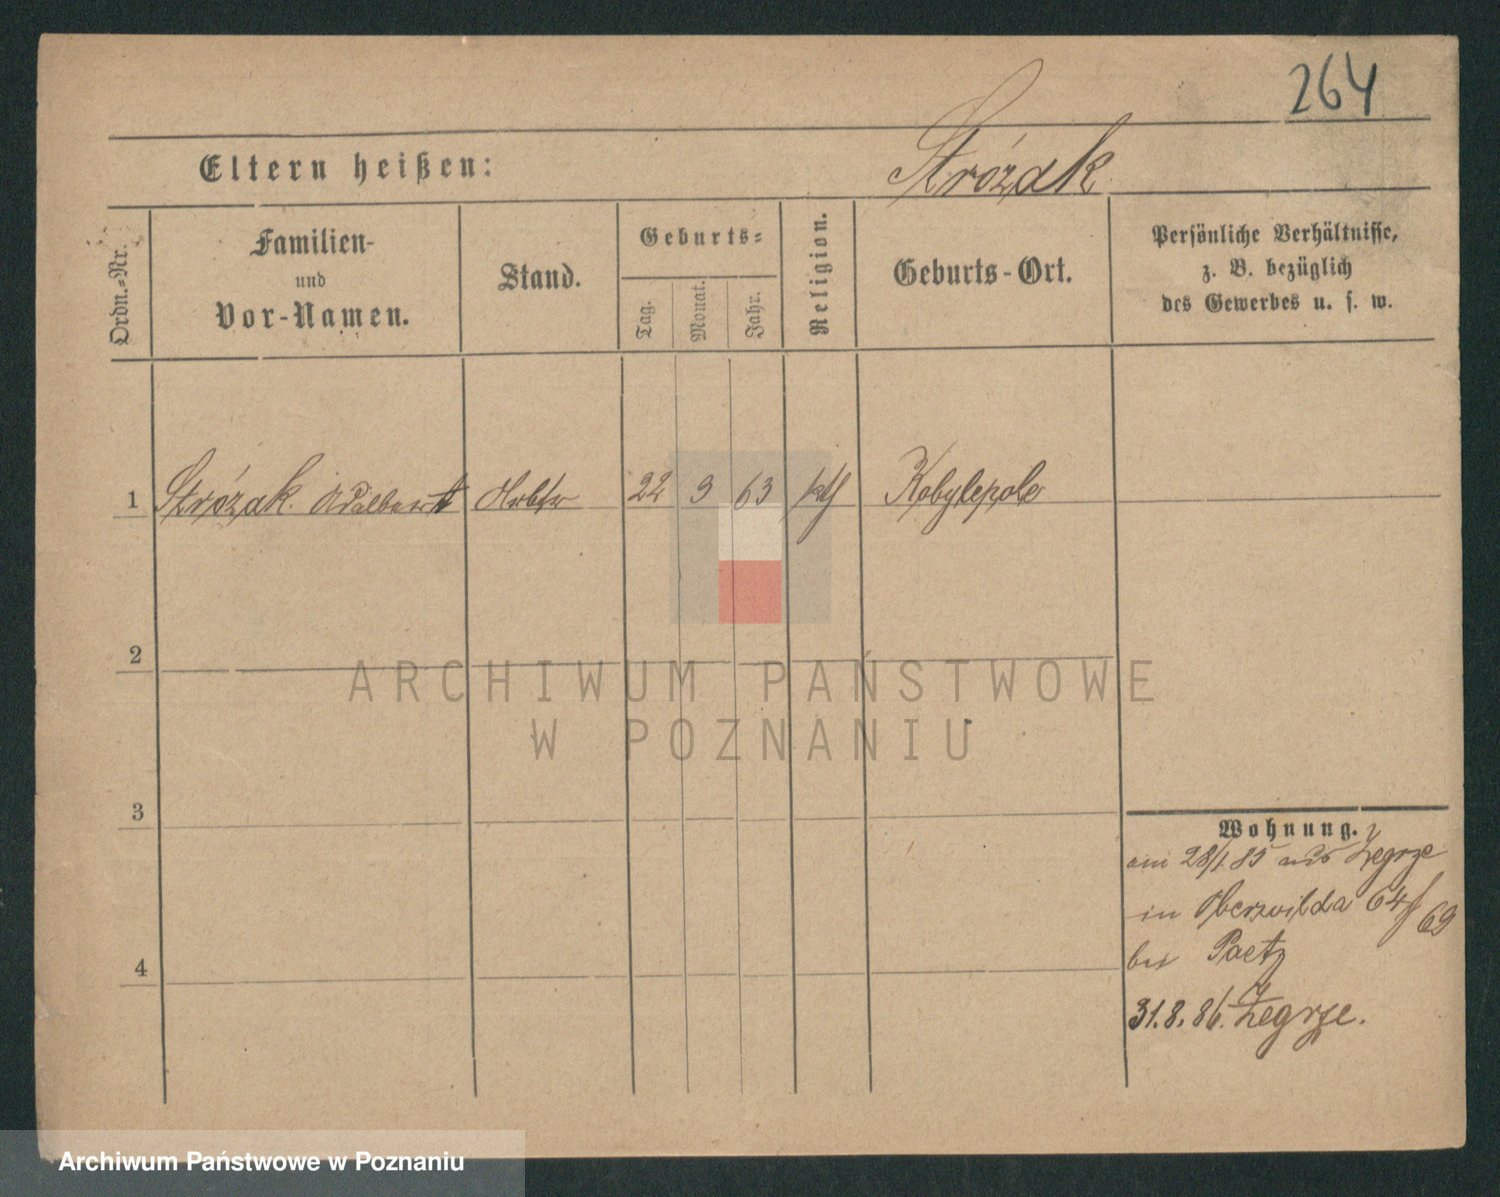 264
Eltern heißen: Stróżak
Ordn.-Nr.
Familien-
und
Vor-Namen.
Stand.
Geburts-
Tag.
Monat.
Jahr.
Religion.
Geburts-Ort.
Persönliche Verhältnisse,
z. B. bezüglich
des Gewerbes u. s. w.
1 Stróżak Adalbert Arbtr 22 3 63 kth Kobylepole
2
ARCHIWUM PAŃSTWOWE
W POZNANIU
3
Wohnung.
am 28/1 85 aus Żegrze
in Oberwilda 64/69
bei Paetz
4
31.8.86. Żegrze.
Archiwum Państwowe w Poznaniu